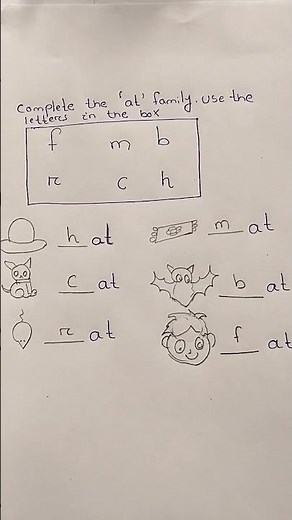 Complete the 'at' family. Use the
letters in the box
f m b
r c h
h at
m at
c at
b at
r at
f at